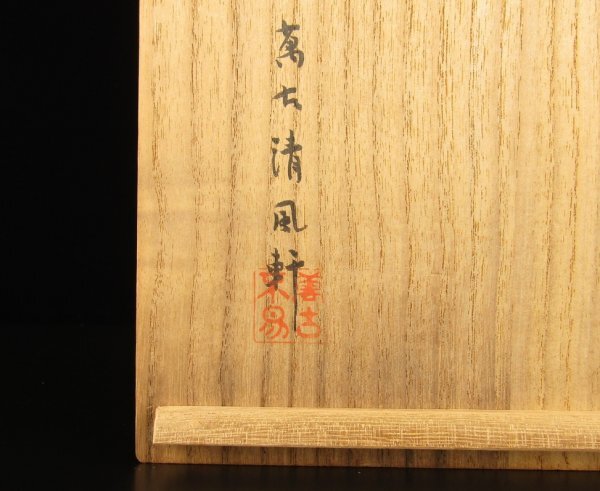 萬古清風軒
萬古
東易